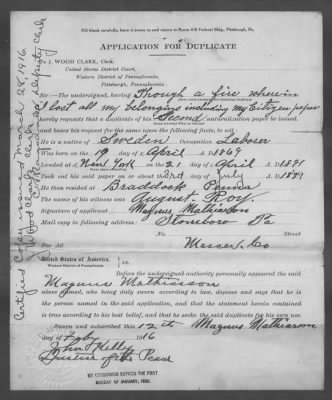 Fill blank carefully, have it sworn to and return to Room 410 Federal Bldg., Pittsburgh, Pa.
APPLICATION FOR DUPLICATE
To J. WOOD CLARK, Clerk,
United States District Court,
Western District of Pennsylvania,
Pittsburgh, Pennsylvania.
Sir:—The undersigned, having Through a fire wherein
I lost all my belongings including my Citizen paper
hereby requests that a duplicate of his Second naturalization paper be issued,
and bases his request upon the following facts, to wit:
He is a native of Sweden Occupation Laborer
Was born on the 19 day of April A. D. 1869
Landed at New York on the 21 day of April A. D. 1891
Took out his said paper on or about the 3rd day of July A. D. 1899
He then resided at Braddock Penna
The name of his witness was August Roy.
Signature of applicant Magnus Mathiasson
Mail copy to following address: Stoneboro Pa
No. Street
For 50 Mercer Co
United States of America, } ss.
Western District of Pennsylvania.
Before the undersigned authority personally appeared the said
Magnus Mathiasson
above named, who being duly sworn according to law, deposes and says that he is
the person named in the said application, and that the statement herein contained
is true according to his best belief, and that he seeks the said duplicate for his own use.
Sworn and subscribed this 12th Magnus Mathiasson
day of Feby 1916
John Kelly
Justice of the Peace
MY COMMISSION EXPIRES THE FIRST
MONDAY OF JANUARY, 1920.
Certified Copy issued March 25, 1916.
J Wood Clark Clerk
Deputy Clerk